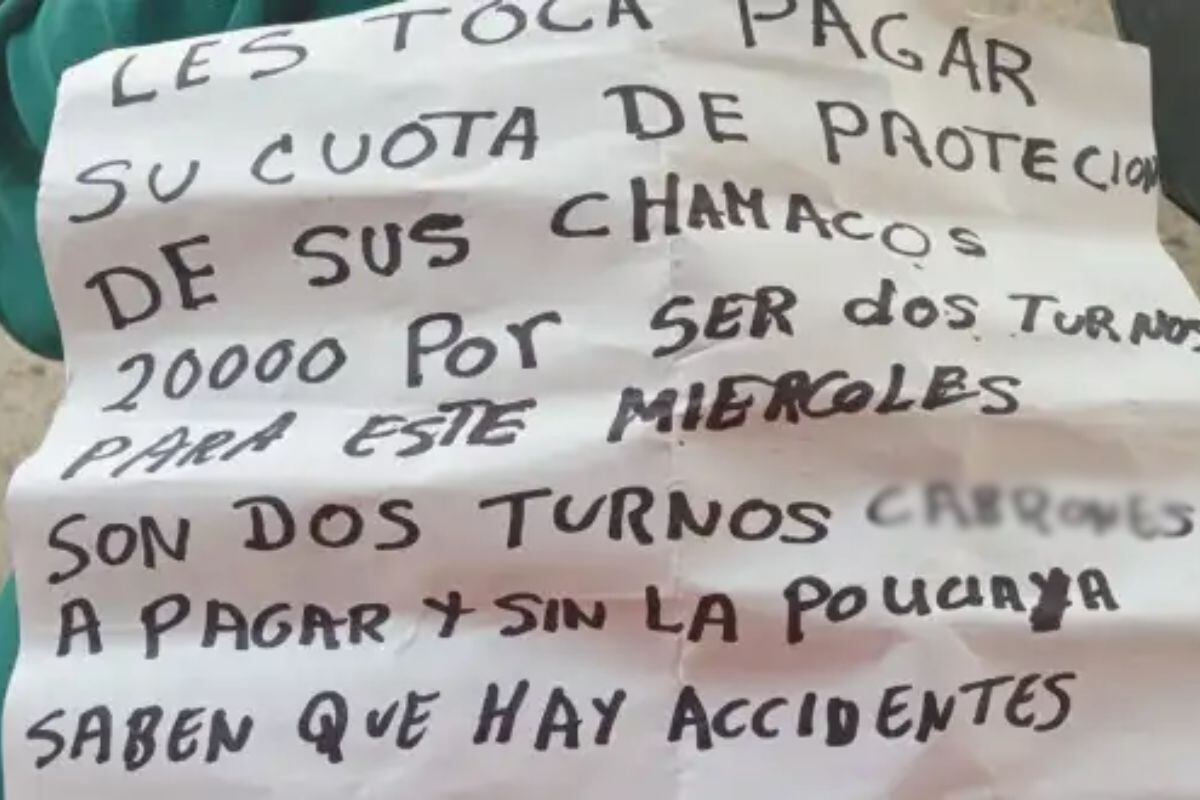 LES TOCA PAGAR
SU CUOTA DE PROTECION
DE SUS CHAMACOS
20000 POr SER dos TURNOS
PARA ESTE MIERCOLES
SON DOS TURNOS CABRONES
A PAGAR Y SIN LA POLICIA YA
SABEN QUE HAY ACCIDENTES